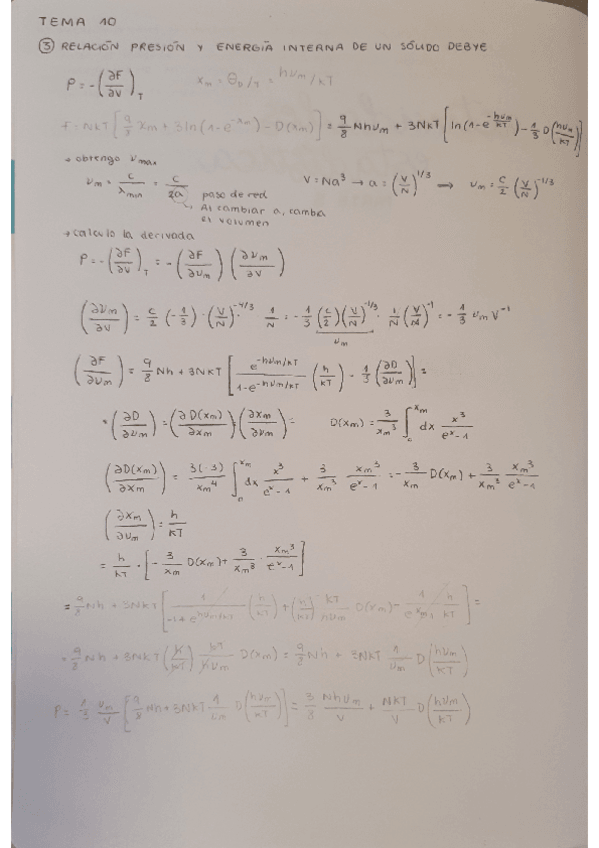 TEMA 10
③ RELACIÓN PRESIÓN Y ENERGÍA INTERNA DE UN SÓLIDO DEBYE
P = -(∂F/∂V)_T    x_m = Θ_D/T = hν_m/kT
F = NkT[9/8 x_m + 3ln(1-e^{-x_m}) - D(x_m)] = 9/8 Nhν_m + 3NkT[ln(1-e^{-hν_m/kT}) - 1/3 D(hν_m/kT)]
→ obtengo ν_max
ν_m = c/λ_min = c/2a    V = Na³ → a = (V/N)^{1/3} → ν_m = c/2 (V/N)^{-1/3}
paso de red
↳ Al cambiar a, cambia
el volumen
→ calculo la derivada
P = -(∂F/∂V)_T = -(∂F/∂ν_m)(∂ν_m/∂V)
(∂ν_m/∂V) = c/2 (-1/3)·(V/N)^{-4/3} 1/N = -1/3 (c/2)(V/N)^{-1/3} · 1/N (V/N)^{-1} = -1/3 ν_m V^{-1}
ν_m
(∂F/∂ν_m) = 9/8 Nh + 3NkT[e^{-hν_m/kT}/1-e^{-hν_m/kT} (h/kT) - 1/3 (∂D/∂ν_m)] =
• (∂D/∂ν_m) = (∂D(x_m)/∂x_m)·(∂x_m/∂ν_m) =    D(x_m) = 3/x_m³ ∫_0^{x_m} dx x³/e^x-1
(∂D(x_m)/∂x_m) = 3(-3)/x_m⁴ ∫_0^{x_m} dx x³/e^x-1 + 3/x_m³ · x_m³/e^x-1 = -3/x_m D(x_m) + 3/x_m³ x_m³/e^x-1
(∂x_m/∂ν_m) = h/kT
= h/kT · [-3/x_m D(x_m) + 3/x_m³ · x_m³/e^x-1]
= 9/8 Nh + 3NkT[1/-1+e^{hν_m/kT} (h/kT) + (h/kT) kT/hν_m D(x_m) - 1/e^{x_m}-1 h/kT] =
= 9/8 Nh + 3NkT(h/kT) kT/hν_m D(x_m) = 9/8 Nh + 3NKT 1/ν_m D(hν_m/kT)
P = 1/3 ν_m/V [9/8 Nh + 3NkT 1/ν_m D(hν_m/kT)] = 3/8 Nhν_m/V + NKT/V D(hν_m/KT)